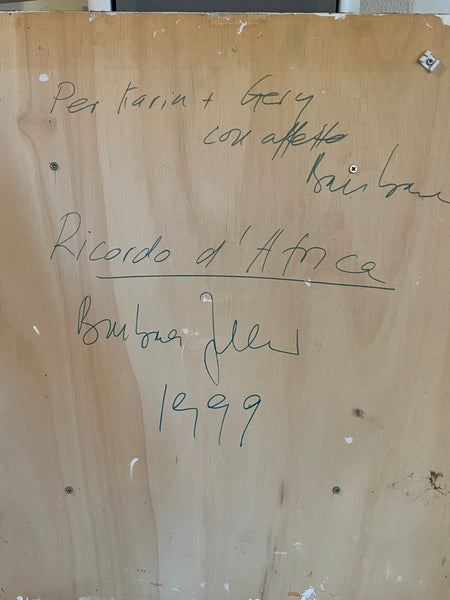 Per Karin + Gery
con affetto
Barbara
Ricordo d'Africa
Barbara
1999